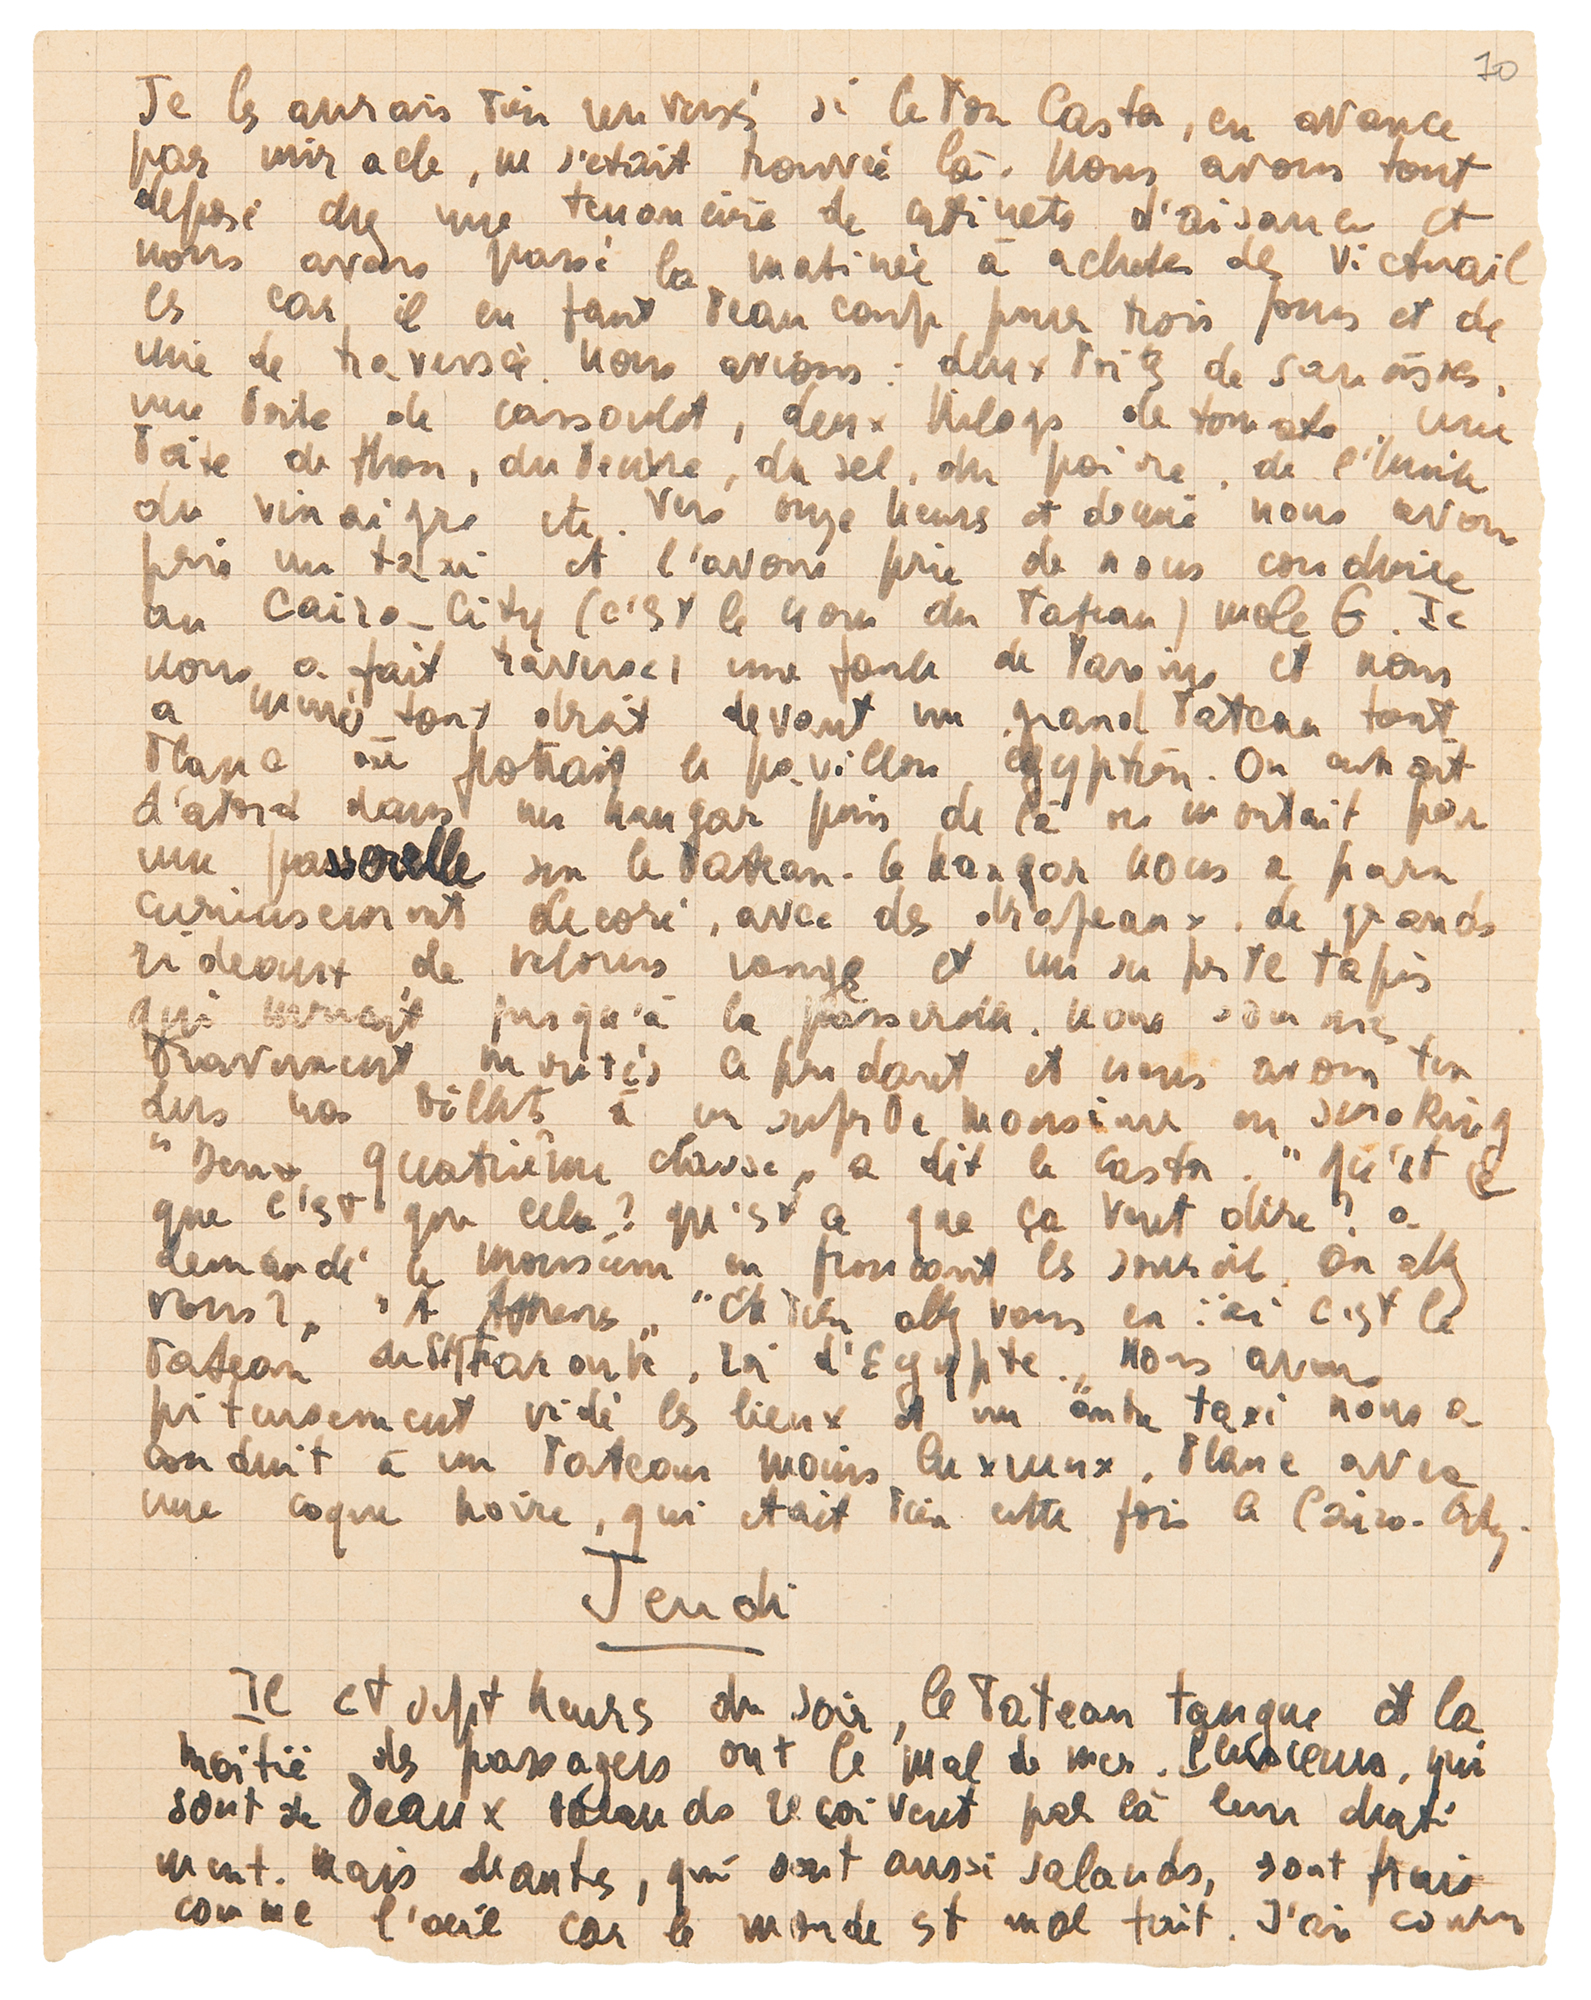 10
Je les aurais bien renversés si le bon Castor, en avance
par miracle, ne s'était trouvé là. Nous avons tout
déposé chez une tenancière de cabinets d'aisance et
nous avons passé la matinée à acheter des victuail
les car il en faut beaucoup pour trois jours et de
mie de traversée. Nous avions : deux boites de saucisses,
une boite de cassoulet, deux kilogs de tomates, une
boite de thon, du beurre, du sel, du poivre, de l'huile
du vinaigre etc. Vers onze heures et demie nous avons
pris un taxi et l'avons prié de nous conduire
au Cairo-City (c'est le nom du bateau) mole G. Il
nous a fait traverser une foule de bassins et nous
a mené tout droit devant un grand bateau tout
blanc où flottait le pavillon égyptien. On entrait
d'abord dans un hangar puis de là on montait par
une passerelle sur le bateau. Le hangar nous a paru
curieusement décoré, avec des drapeaux, de grands
rideaux de velours rouge et un superbe tapis
qui menait jusqu'à la passerelle. Nous sommes
bravement montés le pendant et nous avons ten
dus nos billets à un superbe monsieur en smoking
"Deux quatrième classe" a dit le Castor. "Qu'est ce
que c'est que cela? qu'est ce que ça veut dire? a
demandé le monsieur en fronçant les sourcils. Où allez
vous?" "A Athènes" "Eh bien allez vous en : ici c'est le
bateau de S.M. Farouk, roi d'Egypte." Nous avons
piteusement vidé les lieux et un autre taxi nous a
conduit à un bateau moins luxueux, blanc avec
une coque noire, qui était bien cette fois le Cairo-City.
Jeudi
Il est sept heures du soir, le bateau tangue et la
moitié des passagers ont le mal de mer. Plusieurs, qui
sont de beaux salauds reçoivent par là leur chati
ment. Mais d'autres, qui sont aussi salauds, sont frais
comme l'œil car le monde est mal fait. J'ai couru